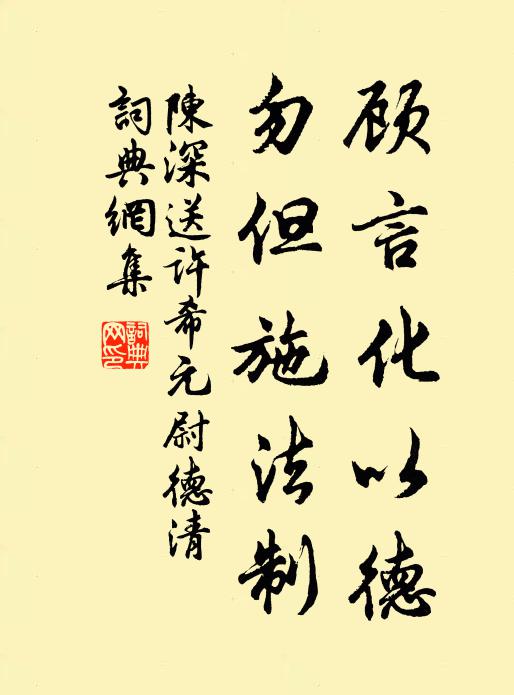 顾言化以德
勿但施法制
陳深送许希元尉德清
詞典網集
詞典網印